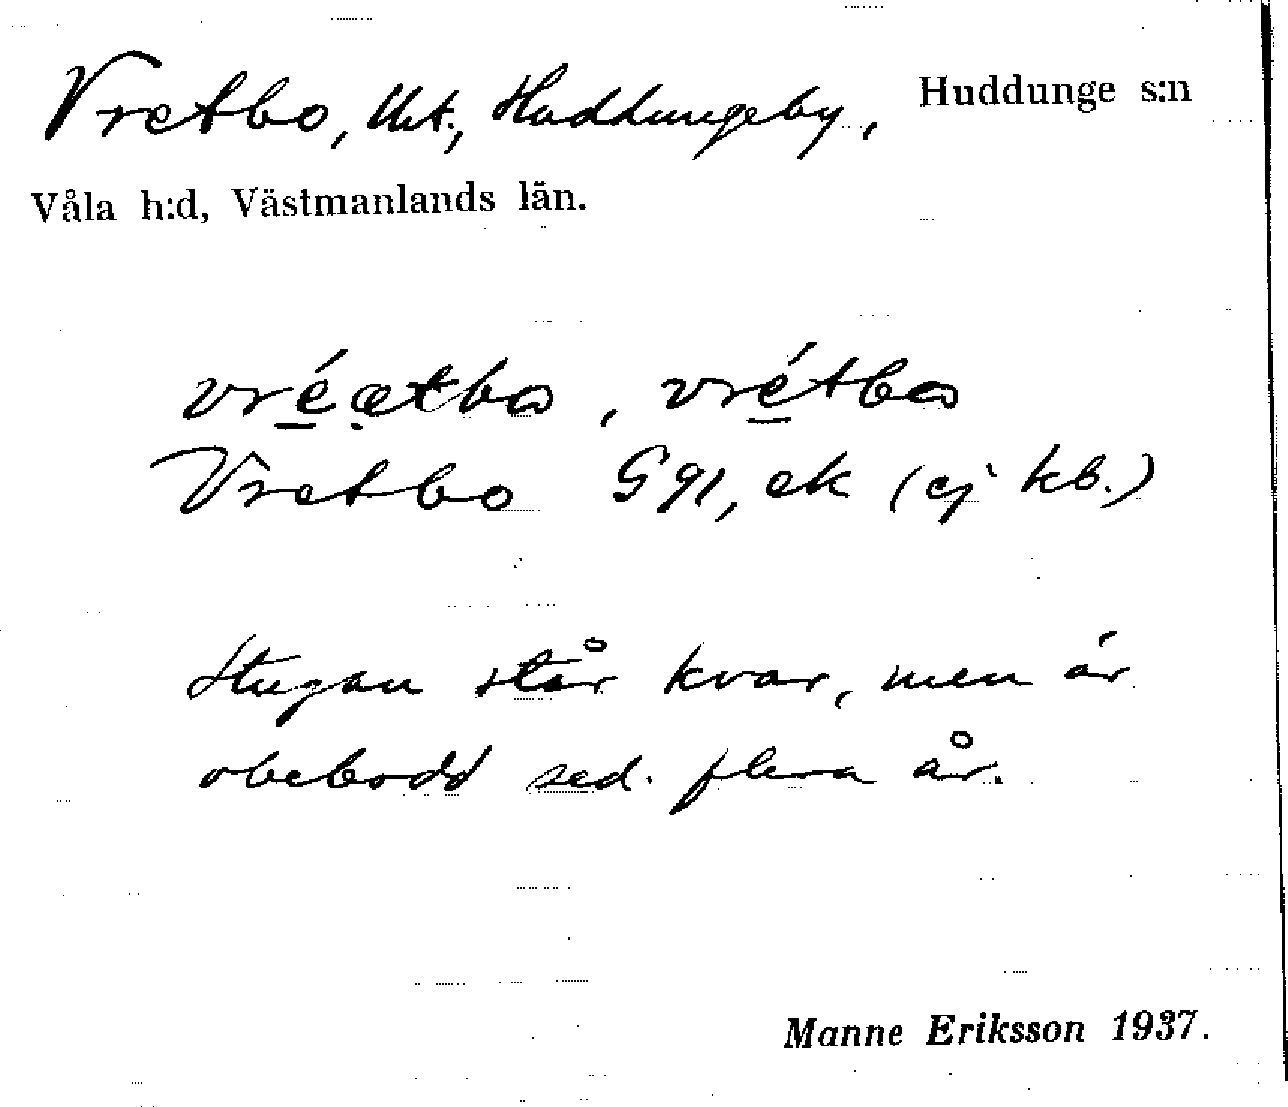 Vretbo, lht., Huddungeby, Huddunge s:n
Våla h:d, Västmanlands län.
vré̲ətbω, vré̲tbω
Vretbo G 91, ek (ej kb.)
Stugan står kvar, men är
obebodd sed. flera år.
Manne Eriksson 1937.